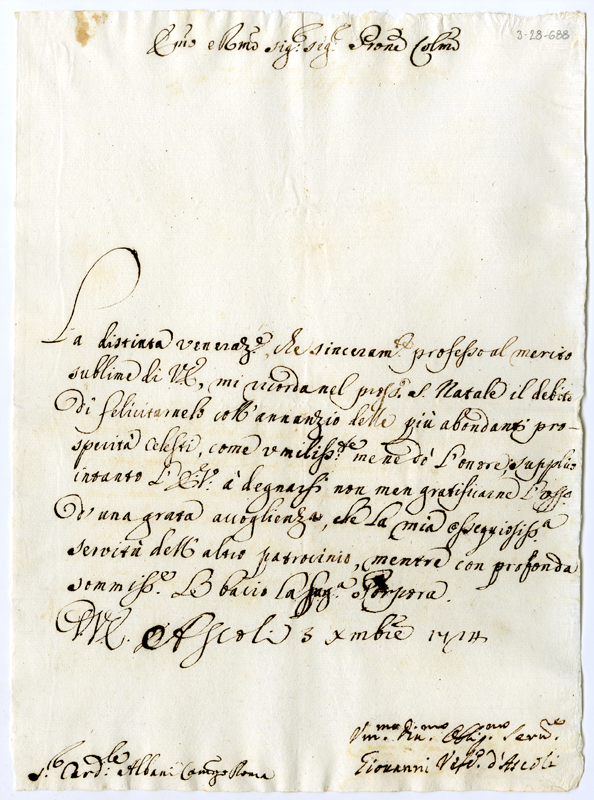 3-28-688
Emo e Rmo Sig.r Sig.r Prone Colmo
La distinta veneraz.e, che sinceram.te professo al merito
sublime di V.E., mi ricorda nel pross.o S. Natale il debito
di felicitarnelo coll'annunzio delle più abondanti pro-
sperità celesti, come umiliss.te me ne dò l'onore; supplico
intanto l'E.V. à degnarsi non men gratificarne l'oss.o
d'una grata accoglienza, che la mia ossequiosiss.a
servitù dell'alto patrocinio, mentre con profonda
sommiss.e le bacio la Sag.a Porpora.
D.V.E. Ascoli 3 Xmbre 1714
Um.mo Div.mo Oblig.mo Serv.e
S.r Card.le Albani Camgo Roma
Giovanni Vesc.o d'Ascoli